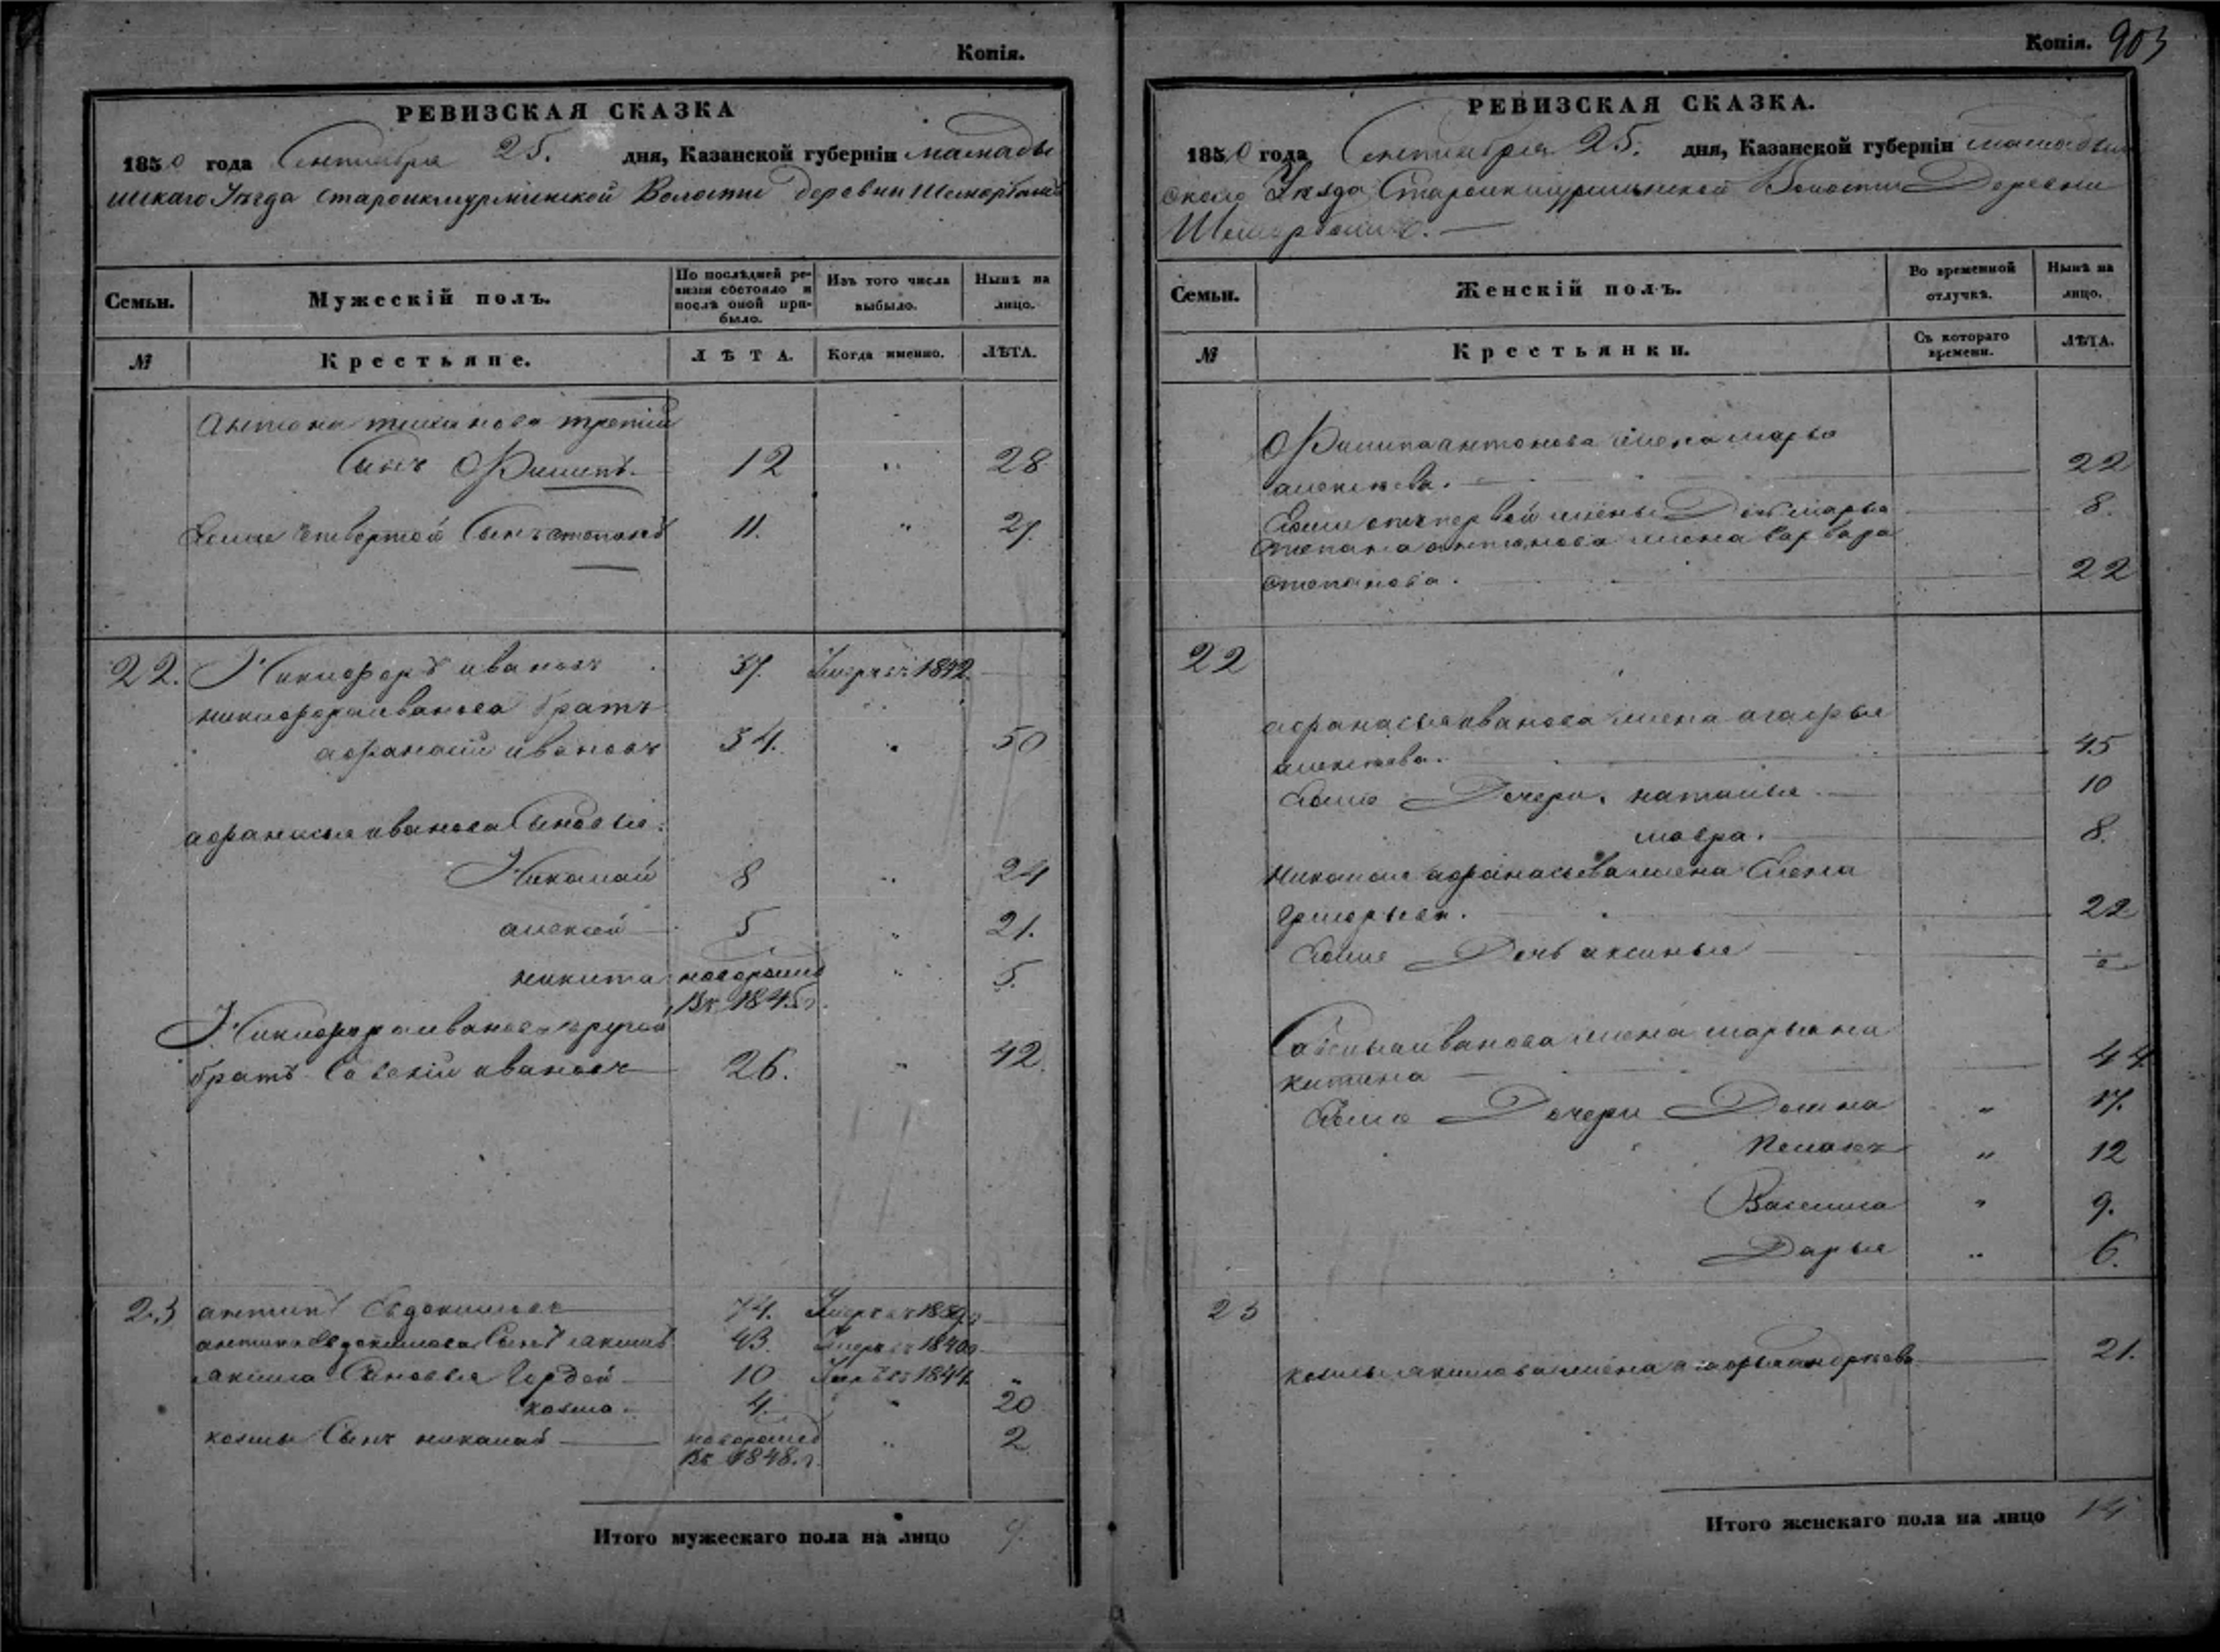 Копія.
РЕВИЗСКАЯ СКАЗКА
1850 года Сентября 25. дня, Казанской губерніи мамады
шскаго Уѣзда Староикшурминской Волости деревни Шеморбаша
Семьи.
Мужескій полъ.
По послѣдней ре-
визіи состояло и
послѣ оной при-
было.
Изъ того числа
выбыло.
Нынѣ на
лицо.
№
Крестьяне.
ЛѢТА.
Когда именно.
ЛѢТА.
Антона тихонова третій
Сынъ Филипъ. 12 " 28
Ево же четвертой Сынъ степанъ 11. " 27.
22. Никифоръ ивановъ 37. Умеръ въ 1842.
никифора иванова братъ
афанасій ивановъ 34. " 50
афанасья иванова Сыновья:
Николай 8 " 24
алексей 5 " 21.
никита новорожд " 5.
Въ 1845 г.
Никифора иванова другой
братъ Савелій ивановъ 26. " 42.
23 антипъ Евдокимовъ 74. Умеръ въ 1839 г.
антипа Евдокимова Сынъ иакимъ 43. Умеръ въ 1840 г.
иакима Сыновья Гордей 10 Умеръ въ 1844 "
козма. 4. " 20
козмы Сынъ николай новорожд " 2
Въ 1848. г.
Итого мужескаго пола на лицо 9.
Копія. 903
РЕВИЗСКАЯ СКАЗКА.
1850 года Сентября 25. дня, Казанской губерніи мамадыш
скаго Уѣзда Староикшурминской Волости Деревни
Шеморбаша.
Семьи.
Женскій полъ.
Во временной
отлучкѣ.
Нынѣ на
лицо.
№
Крестьянки.
Съ котораго
времени.
ЛѢТА.
Филипа антонова жена марья
алексѣева. 22
Ево же отъ первой жены Дочь марья 8.
Степана антонова жена варвара
степанова. 22
22
афанасья иванова жена агафья
алексѣева. 45
Ево же Дочери. наталья 10
мавра. 8.
Николая афанасьева жена Елена
григорьева. 22
Ево же Дочь аксинья
Савелья иванова жена марья ни
китина 44.
Ево же Дочери Домна " 17.
" 12
Василиса " 9.
Дарья " 6.
23
козмы иакимова жена агафья андреева 21.
Итого женскаго пола на лицо 14